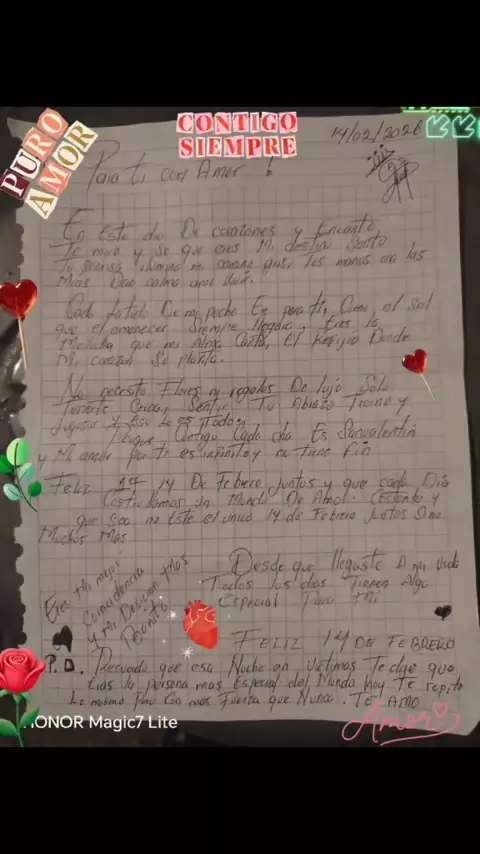 PURO
AMOR
CONTIGO
SIEMPRE
14/02/2026
Para ti con Amor !
En Este dia De corazones y Encanto
Te miro y se que eres Mi destino Santo
Tu sonrisa ilumina mi camino gris, Tus manos con las
Mias Dan calma
Cada Latido De mi pecho Es para ti, Como el Sol
que el amanecer Siempre llegara, Eres la
Melodia que mi Alma Canta, El Refugio Donde
Mi corazon Se planta.
No necesito Flores ni regalos De lujo Solo
Tenerte Cerca, Sentir Tu Abrazo Tierno y
y Eso Lo es Todo,
Contigo Cada dia Es Sanvalentin
y Mi amor por ti es infinito y no Tiene Fin
Feliz 14 De Febrero Juntos y que cada Dia
Un Mundo De Amor. Costante y
que sea no Este el unico 14 de Febrero Juntos Sino
Muchos Mas
Desde que llegaste A mi vida
Todos los dias Tienen Algo
Especial Para Mi
Eres Mi mejor
Coincidencia
y Mi Decision Mas
Bonita
FELIZ 14 DE FEBRERO
P.D. Recuerda que esa Noche en Te dije que
eras la persona mas Especial del Mundo hoy Te repito
Lo mismo pero Con mas Fuerza que Nunca. TE AMO
HONOR Magic7 Lite
Amor